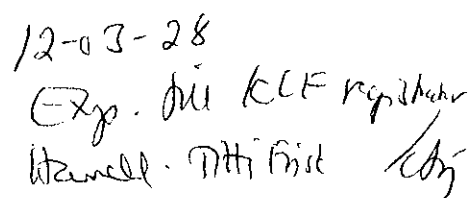 12-03-28
Exp. till KLF registrator
Titti Frist